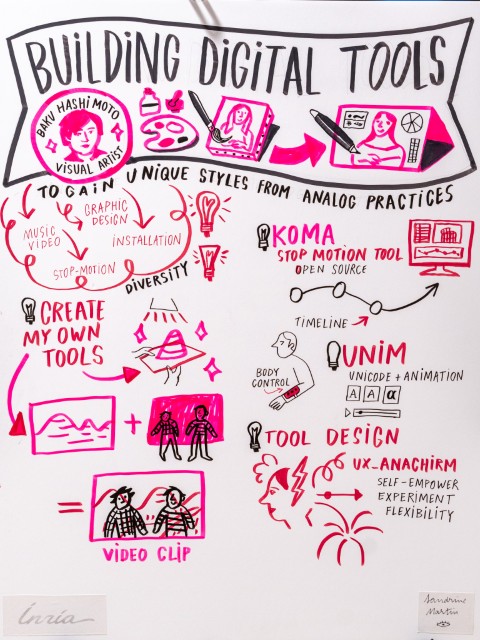 BUILDING DIGITAL TOOLS
BAKU HASHIMOTO
VISUAL ARTIST
TO GAIN UNIQUE STYLES FROM ANALOG PRACTICES
MUSIC
VIDEO
GRAPHIC
DESIGN
INSTALLATION
STOP-MOTION
DIVERSITY
CREATE
MY OWN
TOOLS
+
=
VIDEO CLIP
KOMA
STOP MOTION TOOL
OPEN SOURCE
TIMELINE
BODY
CONTROL
UNIM
UNICODE + ANIMATION
A A α
TOOL DESIGN
UX_ANACHIRM
SELF-EMPOWER
EXPERIMENT
FLEXIBILITY
Inria
Sandrine
Martin